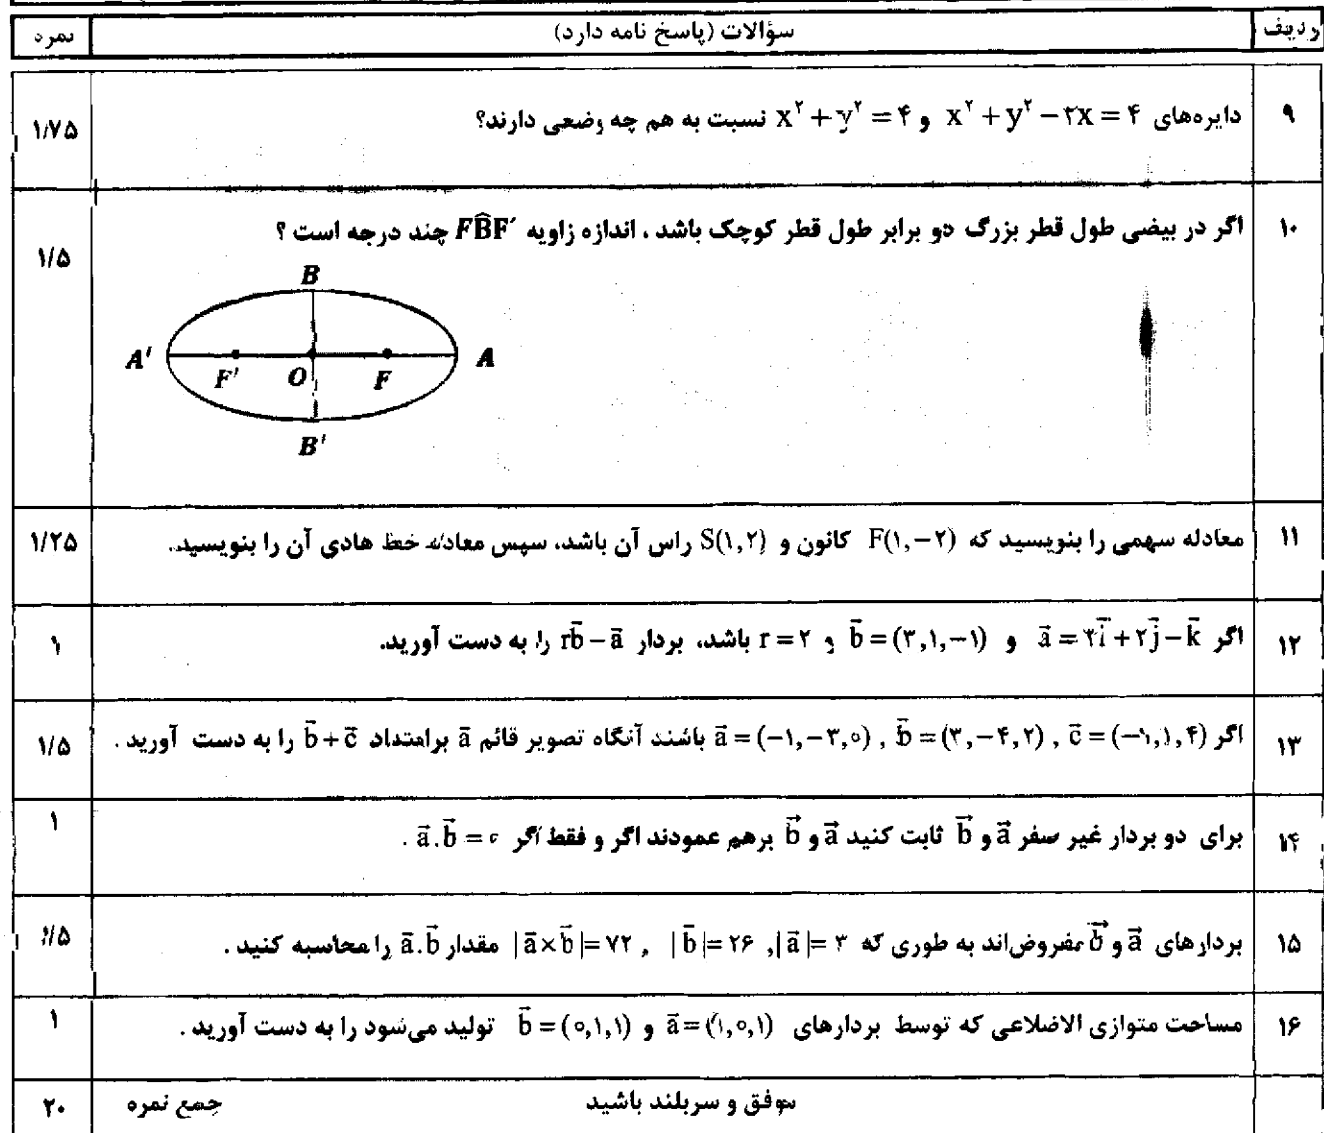 ردیف سؤالات (پاسخ نامه دارد) نمره
۹ دایره‌های x^۲ + y^۲ − ۳x = ۴ و x^۲ + y^۲ = ۴ نسبت به هم چه وضعی دارند؟ ۱/۷۵
۱۰ اگر در بیضی طول قطر بزرگ دو برابر طول قطر کوچک باشد ، اندازه زاویه FB̂F′ چند درجه است ؟ ۱/۵
B
A′ F′ O F A
B′
۱۱ معادله سهمی را بنویسید که F(۱,−۲) کانون و S(۱,۲) راس آن باشد، سپس معادله خط هادی آن را بنویسید. ۱/۲۵
۱۲ اگر a⃗ = ۲i⃗ + ۲j⃗ − k⃗ و b⃗ = (۳,۱,−۱) و r = ۲ باشد، بردار rb⃗ − a⃗ را به دست آورید. ۱
۱۳ اگر a⃗ = (−۱,−۳,۰) , b⃗ = (۳,−۴,۲) , c⃗ = (−۱,۱,۴) باشند آنگاه تصویر قائم a⃗ برامتداد b⃗ + c⃗ را به دست آورید . ۱/۵
۱۴ برای دو بردار غیر صفر a⃗ و b⃗ ثابت کنید a⃗ و b⃗ برهم عمودند اگر و فقط اگر a⃗.b⃗ = ۰ . ۱
۱۵ بردارهای a⃗ و b⃗ مفروض‌اند به طوری که |a⃗| = ۳ , |b⃗| = ۲۶ , |a⃗×b⃗| = ۷۲ مقدار a⃗.b⃗ را محاسبه کنید . ۱/۵
۱۶ مساحت متوازی الاضلاعی که توسط بردارهای a⃗ = (۱,۰,۱) و b⃗ = (۰,۱,۱) تولید می‌شود را به دست آورید . ۱
موفق و سربلند باشید جمع نمره ۲۰